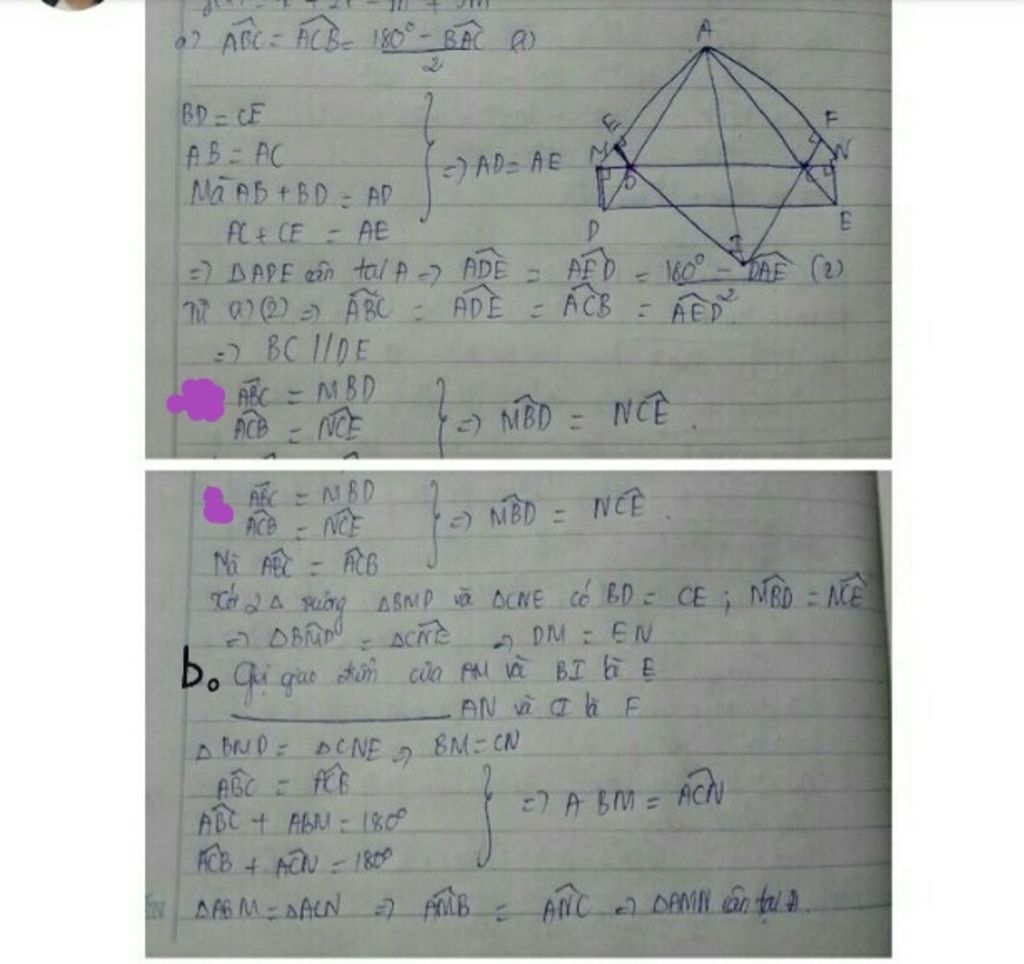 a) ABC = ACB = 180° - BAC (1)
2
BD = CE
AB = AC
Mà AB + BD = AD
AC + CE = AE
=> AD = AE
=> ΔADE cân tại A => ADE = AED = 180° - DAE (2)
2
Từ (1) (2) => ABC = ADE = ACB = AED
=> BC // DE
ABC = MBD
ACB = NCE
=> MBD = NCE.
A
F
M
N
B
D
E
I
ABC = MBD
ACB = NCE
Mà ABC = ACB
=> MBD = NCE.
Xét 2 Δ vuông ΔBMD và ΔCNE có BD = CE ; MBD = NCE
=> ΔBMD = ΔCNE => DM = EN
b. Gọi giao điểm của AM và BI là E
AN và CI là F
ΔBMD = ΔCNE => BM = CN
ABC = ACB
ABC + ABM = 180°
ACB + ACN = 180°
=> ABM = ACN
ΔABM = ΔACN => AMB = ANC => ΔAMN cân tại A.